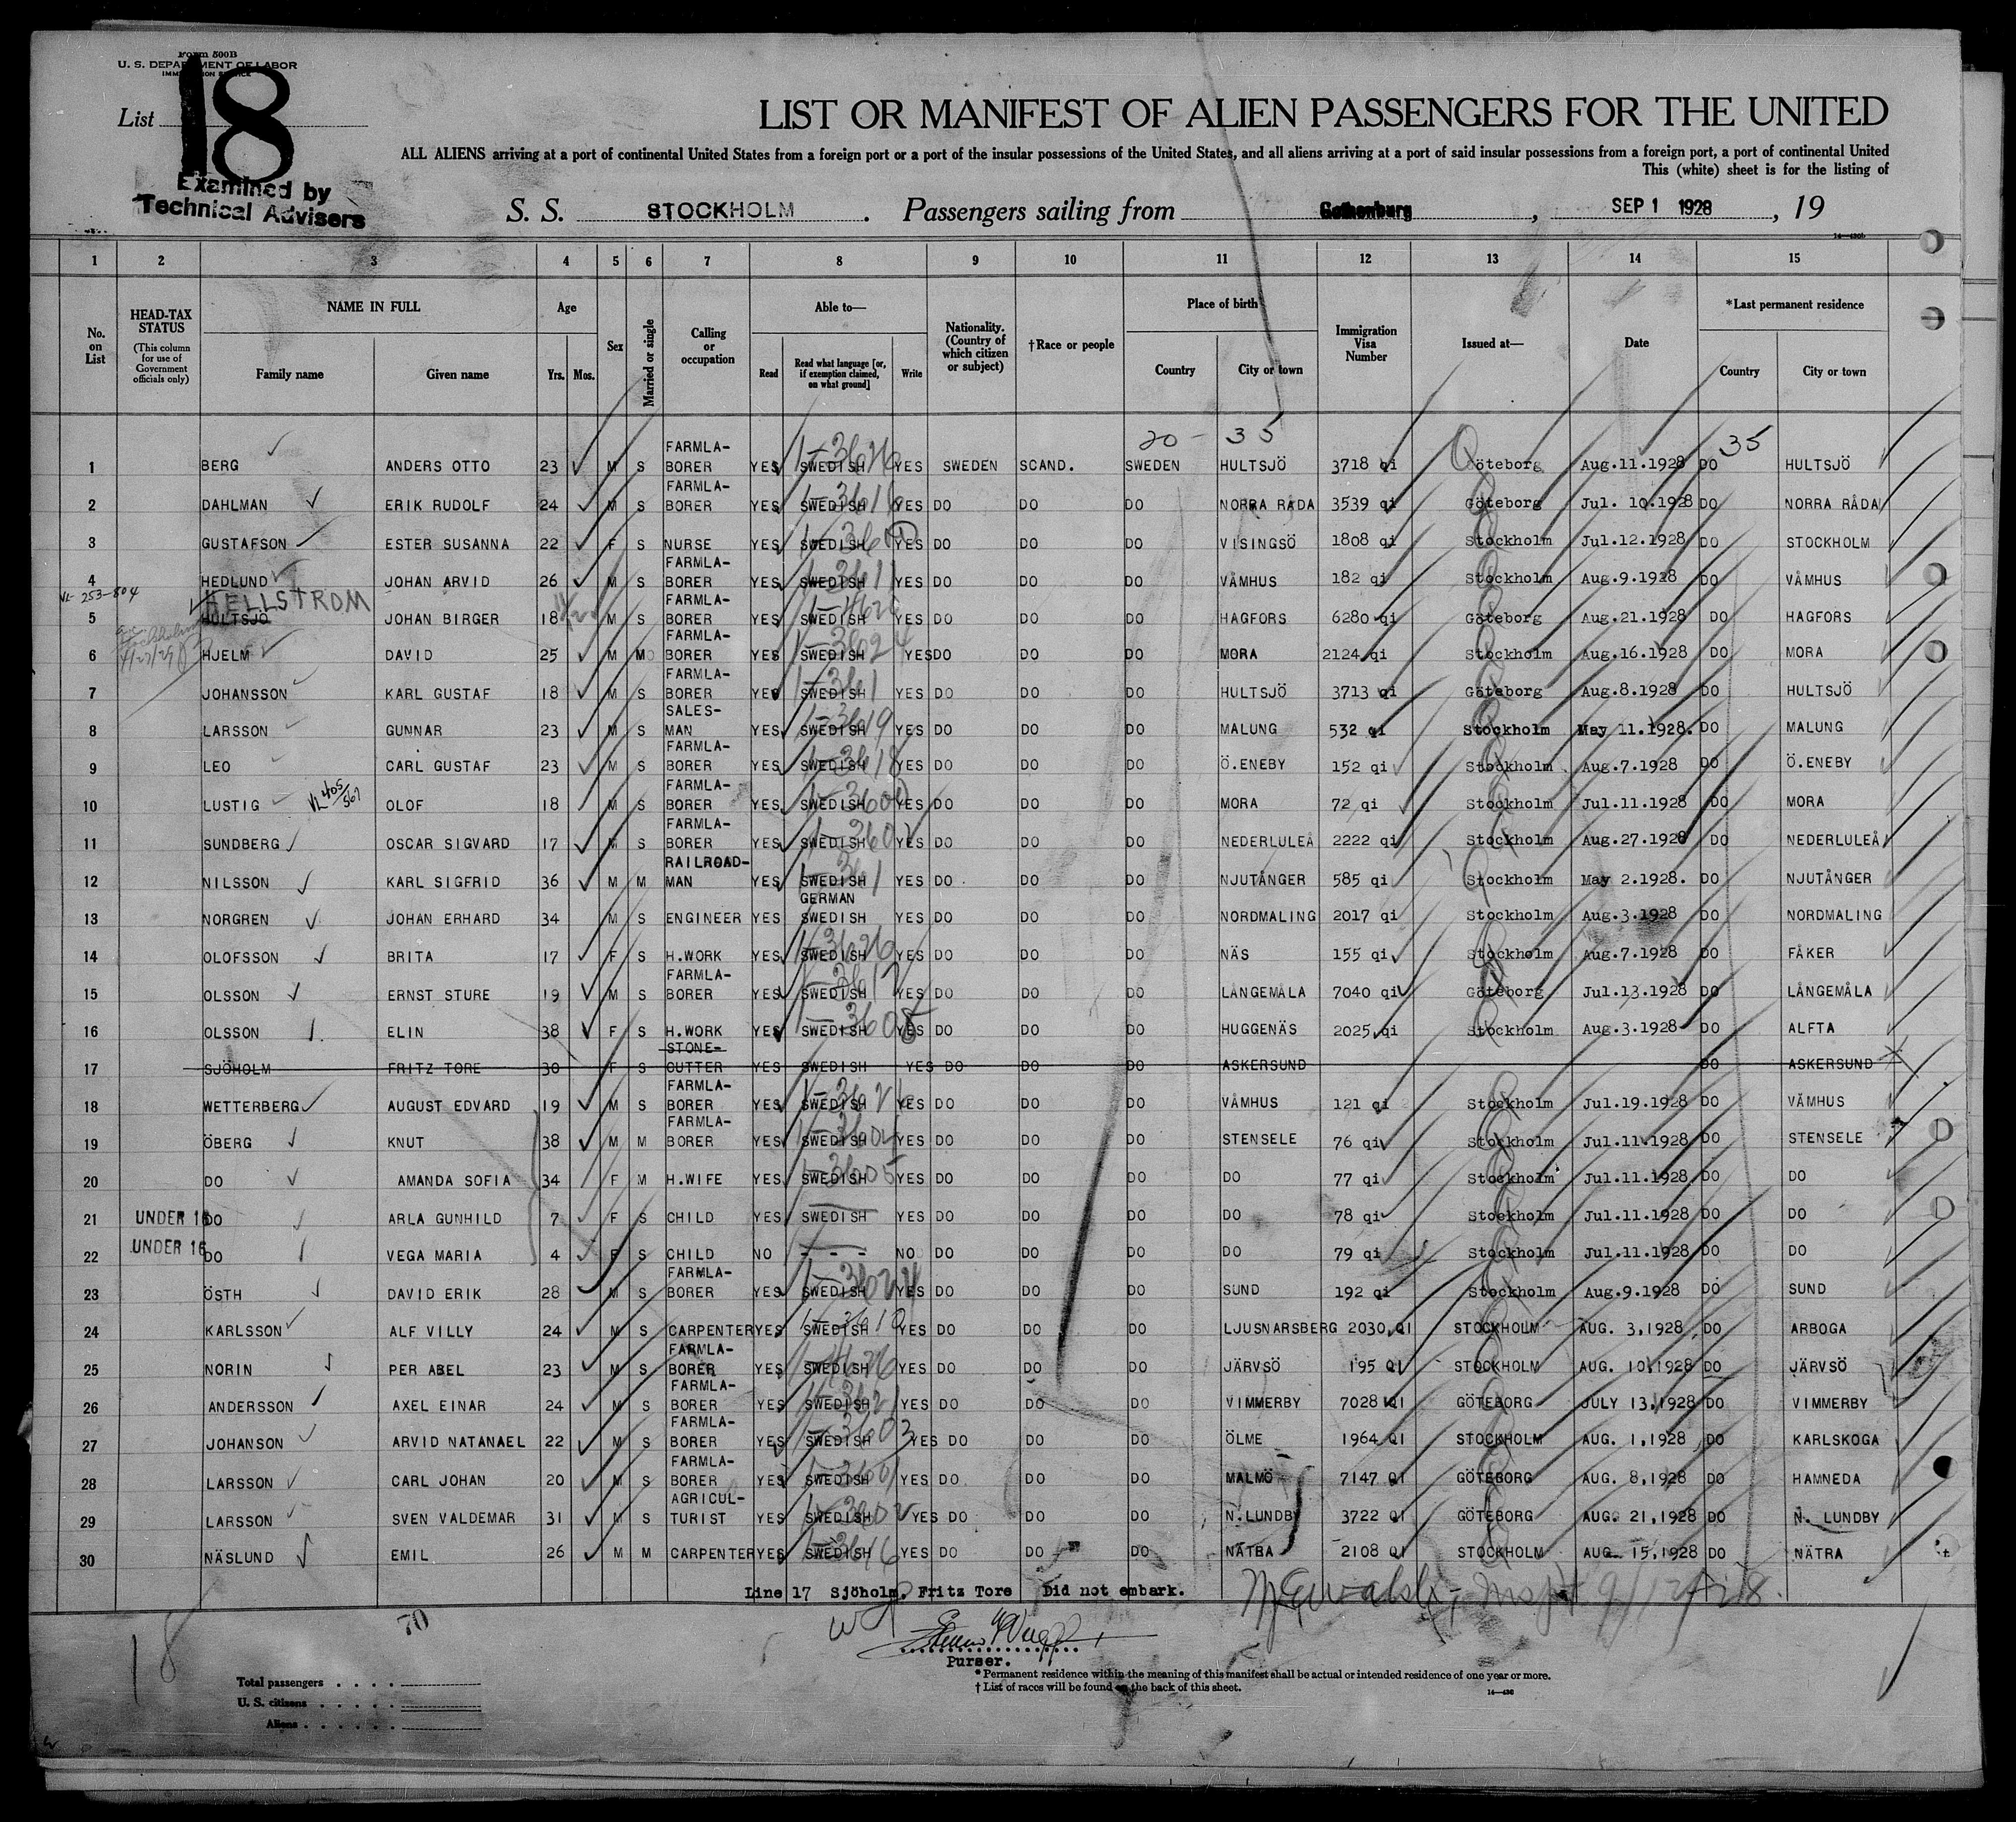 Form 500B
U. S. DEPARTMENT OF LABOR
IMMIGRATION SERVICE
List 18
Examined by
Technical Advisers
LIST OR MANIFEST OF ALIEN PASSENGERS FOR THE UNITED
ALL ALIENS arriving at a port of continental United States from a foreign port or a port of the insular possessions of the United States, and all aliens arriving at a port of said insular possessions from a foreign port, a port of continental United
This (white) sheet is for the listing of
S. S. STOCKHOLM . Passengers sailing from Gothenburg , SEP 1 1928 , 19
1 2 3 4 5 6 7 8 9 10 11 12 13 14 15
No. on List
HEAD-TAX STATUS (This column for use of Government officials only)
NAME IN FULL Family name Given name
Age Yrs. Mos.
Sex
Married or single
Calling or occupation
Able to— Read Read what language [or, if exemption claimed, on what ground] Write
Nationality. (Country of which citizen or subject)
†Race or people
Place of birth Country City or town
Immigration Visa Number
Issued at—
Date
*Last permanent residence Country City or town
20 - 35 35
1 BERG ANDERS OTTO 23 M S FARMLA-BORER YES SWEDISH YES SWEDEN SCAND. SWEDEN HULTSJÖ 3718 qi Göteborg Aug.11.1928 DO HULTSJÖ
2 DAHLMAN ERIK RUDOLF 24 M S FARMLA-BORER YES SWEDISH YES DO DO DO NORRA RÅDA 3539 qi Göteborg Jul. 10.1928 DO NORRA RÅDA
3 GUSTAFSON ESTER SUSANNA 22 F S NURSE YES SWEDISH YES DO DO DO VISINGSÖ 1808 qi Stockholm Jul.12.1928 DO STOCKHOLM
4 HEDLUND JOHAN ARVID 26 M S FARMLA-BORER YES SWEDISH YES DO DO DO VÅMHUS 182 qi Stockholm Aug.9.1928 DO VÅMHUS
VL-253-804 HELLSTROM
5 HULTSJÖ JOHAN BIRGER 18 M S FARMLA-BORER YES SWEDISH YES DO DO DO HAGFORS 6280 qi Göteborg Aug.21.1928 DO HAGFORS
6 HJELM DAVID 25 M M FARMLA-BORER YES SWEDISH YES DO DO DO MORA 2124 qi Stockholm Aug.16.1928 DO MORA
7 JOHANSSON KARL GUSTAF 18 M S FARMLA-BORER YES SWEDISH YES DO DO DO HULTSJÖ 3713 qi Göteborg Aug.8.1928 DO HULTSJÖ
8 LARSSON GUNNAR 23 M S SALES-MAN YES SWEDISH YES DO DO DO MALUNG 532 qi Stockholm May 11.1928. DO MALUNG
9 LEO CARL GUSTAF 23 M S FARMLA-BORER YES SWEDISH YES DO DO DO Ö.ENEBY 152 qi Stockholm Aug.7.1928 DO Ö.ENEBY
10 LUSTIG OLOF 18 M S FARMLA-BORER YES SWEDISH YES DO DO DO MORA 72 qi Stockholm Jul.11.1928 DO MORA
11 SUNDBERG OSCAR SIGVARD 17 M S FARMLA-BORER YES SWEDISH YES DO DO DO NEDERLULEÅ 2222 qi Stockholm Aug.27.1928 DO NEDERLULEÅ
12 NILSSON KARL SIGFRID 36 M M RAILROAD-MAN YES SWEDISH YES DO DO DO NJUTÅNGER 585 qi Stockholm May 2.1928. DO NJUTÅNGER
13 NORGREN JOHAN ERHARD 34 M S ENGINEER YES GERMAN SWEDISH YES DO DO DO NORDMALING 2017 qi Stockholm Aug.3.1928 DO NORDMALING
14 OLOFSSON BRITA 17 F S H.WORK YES SWEDISH YES DO DO DO NÄS 155 qi Stockholm Aug.7.1928 DO FÅKER
15 OLSSON ERNST STURE 19 M S FARMLA-BORER YES SWEDISH YES DO DO DO LÅNGEMÅLA 7040 qi Göteborg Jul.13.1928 DO LÅNGEMÅLA
16 OLSSON ELIN 38 F S H.WORK YES SWEDISH YES DO DO DO HUGGENÄS 2025 qi Stockholm Aug.3.1928 DO ALFTA
17 SJÖHOLM FRITZ TORE 30 F S STONE-CUTTER YES SWEDISH YES DO DO DO ASKERSUND DO ASKERSUND
18 WETTERBERG AUGUST EDVARD 19 M S FARMLA-BORER YES SWEDISH YES DO DO DO VÅMHUS 121 qi Stockholm Jul.19.1928 DO VÅMHUS
19 ÖBERG KNUT 38 M M FARMLA-BORER YES SWEDISH YES DO DO DO STENSELE 76 qi Stockholm Jul.11.1928 DO STENSELE
20 DO AMANDA SOFIA 34 F M H.WIFE YES SWEDISH YES DO DO DO DO 77 qi Stockholm Jul.11.1928 DO DO
21 UNDER 16 DO ARLA GUNHILD 7 F S CHILD YES SWEDISH YES DO DO DO DO 78 qi Stockholm Jul.11.1928 DO DO
22 UNDER 16 DO VEGA MARIA 4 F S CHILD NO - - - NO DO DO DO DO 79 qi Stockholm Jul.11.1928 DO DO
23 ÖSTH DAVID ERIK 28 M S FARMLA-BORER YES SWEDISH YES DO DO DO SUND 192 qi Stockholm Aug.9.1928 DO SUND
24 KARLSSON ALF VILLY 24 M S CARPENTER YES SWEDISH YES DO DO DO LJUSNARSBERG 2030 QI STOCKHOLM AUG. 3,1928 DO ARBOGA
25 NORIN PER ABEL 23 M S FARMLA-BORER YES SWEDISH YES DO DO DO JÄRVSÖ 195 QI STOCKHOLM AUG. 10,1928 DO JÄRVSÖ
26 ANDERSSON AXEL EINAR 24 M S FARMLA-BORER YES SWEDISH YES DO DO DO VIMMERBY 7028 QI GÖTEBORG JULY 13,1928 DO VIMMERBY
27 JOHANSON ARVID NATANAEL 22 M S FARMLA-BORER YES SWEDISH YES DO DO DO ÖLME 1964 QI STOCKHOLM AUG. 1,1928 DO KARLSKOGA
28 LARSSON CARL JOHAN 20 M S FARMLA-BORER YES SWEDISH YES DO DO DO MALMÖ 7147 QI GÖTEBORG AUG. 8,1928 DO HAMNEDA
29 LARSSON SVEN VALDEMAR 31 M S AGRICUL-TURIST YES SWEDISH YES DO DO DO N.LUNDBY 3722 QI GÖTEBORG AUG. 21,1928 DO N. LUNDBY
30 NÄSLUND EMIL 26 M M CARPENTER YES SWEDISH YES DO DO DO NÄTRA 2108 QI STOCKHOLM AUG. 15,1928 DO NÄTRA
Line 17 Sjöholm, Fritz Tore Did not embark.
70
18
Purser.
* Permanent residence within the meaning of this manifest shall be actual or intended residence of one year or more.
† List of races will be found on the back of this sheet.
Total passengers . . . .
U. S. citizens . . . . .
Aliens . . . . . .